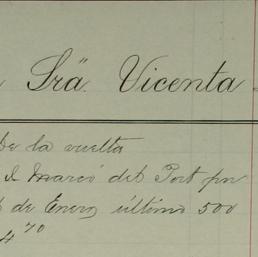 Sra Vicenta
De la vuelta
I. Marcó del Pont por
de Enero último 500
4 70